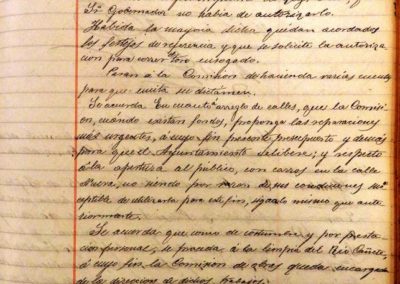 Sr. Gobernador no habia de autorizarlo.
Habida la mayoria dicha quedan acordados
los festejos de referencia y que se solicite la autoriza
cion para correr toro enzogado.
Pasan á la Comision de hacienda varias cuentas
para que emita su dictamen.
Se acuerda En cuanto arreglo de calles, que la Comisi
on, cuando existan fondos, proponga las reparaciones
mas urgentes, á cuyo fin presente presupuesto y demás
para que el Ayuntamiento delibere; y respecto
á la apertura al público, con carros en la calle
Nueva, no siendo por razon de sus condiciones sus
eptible de utilizarla para este fin, sigalo mismo que ante
riormente.
Se acuerda que como de costumbre y por presta
cion personal, se proceda á la limpia del Rio Cañete,
á cuyo fin la Comision de obras queda encargada
de la direccion de dichos trabajos.